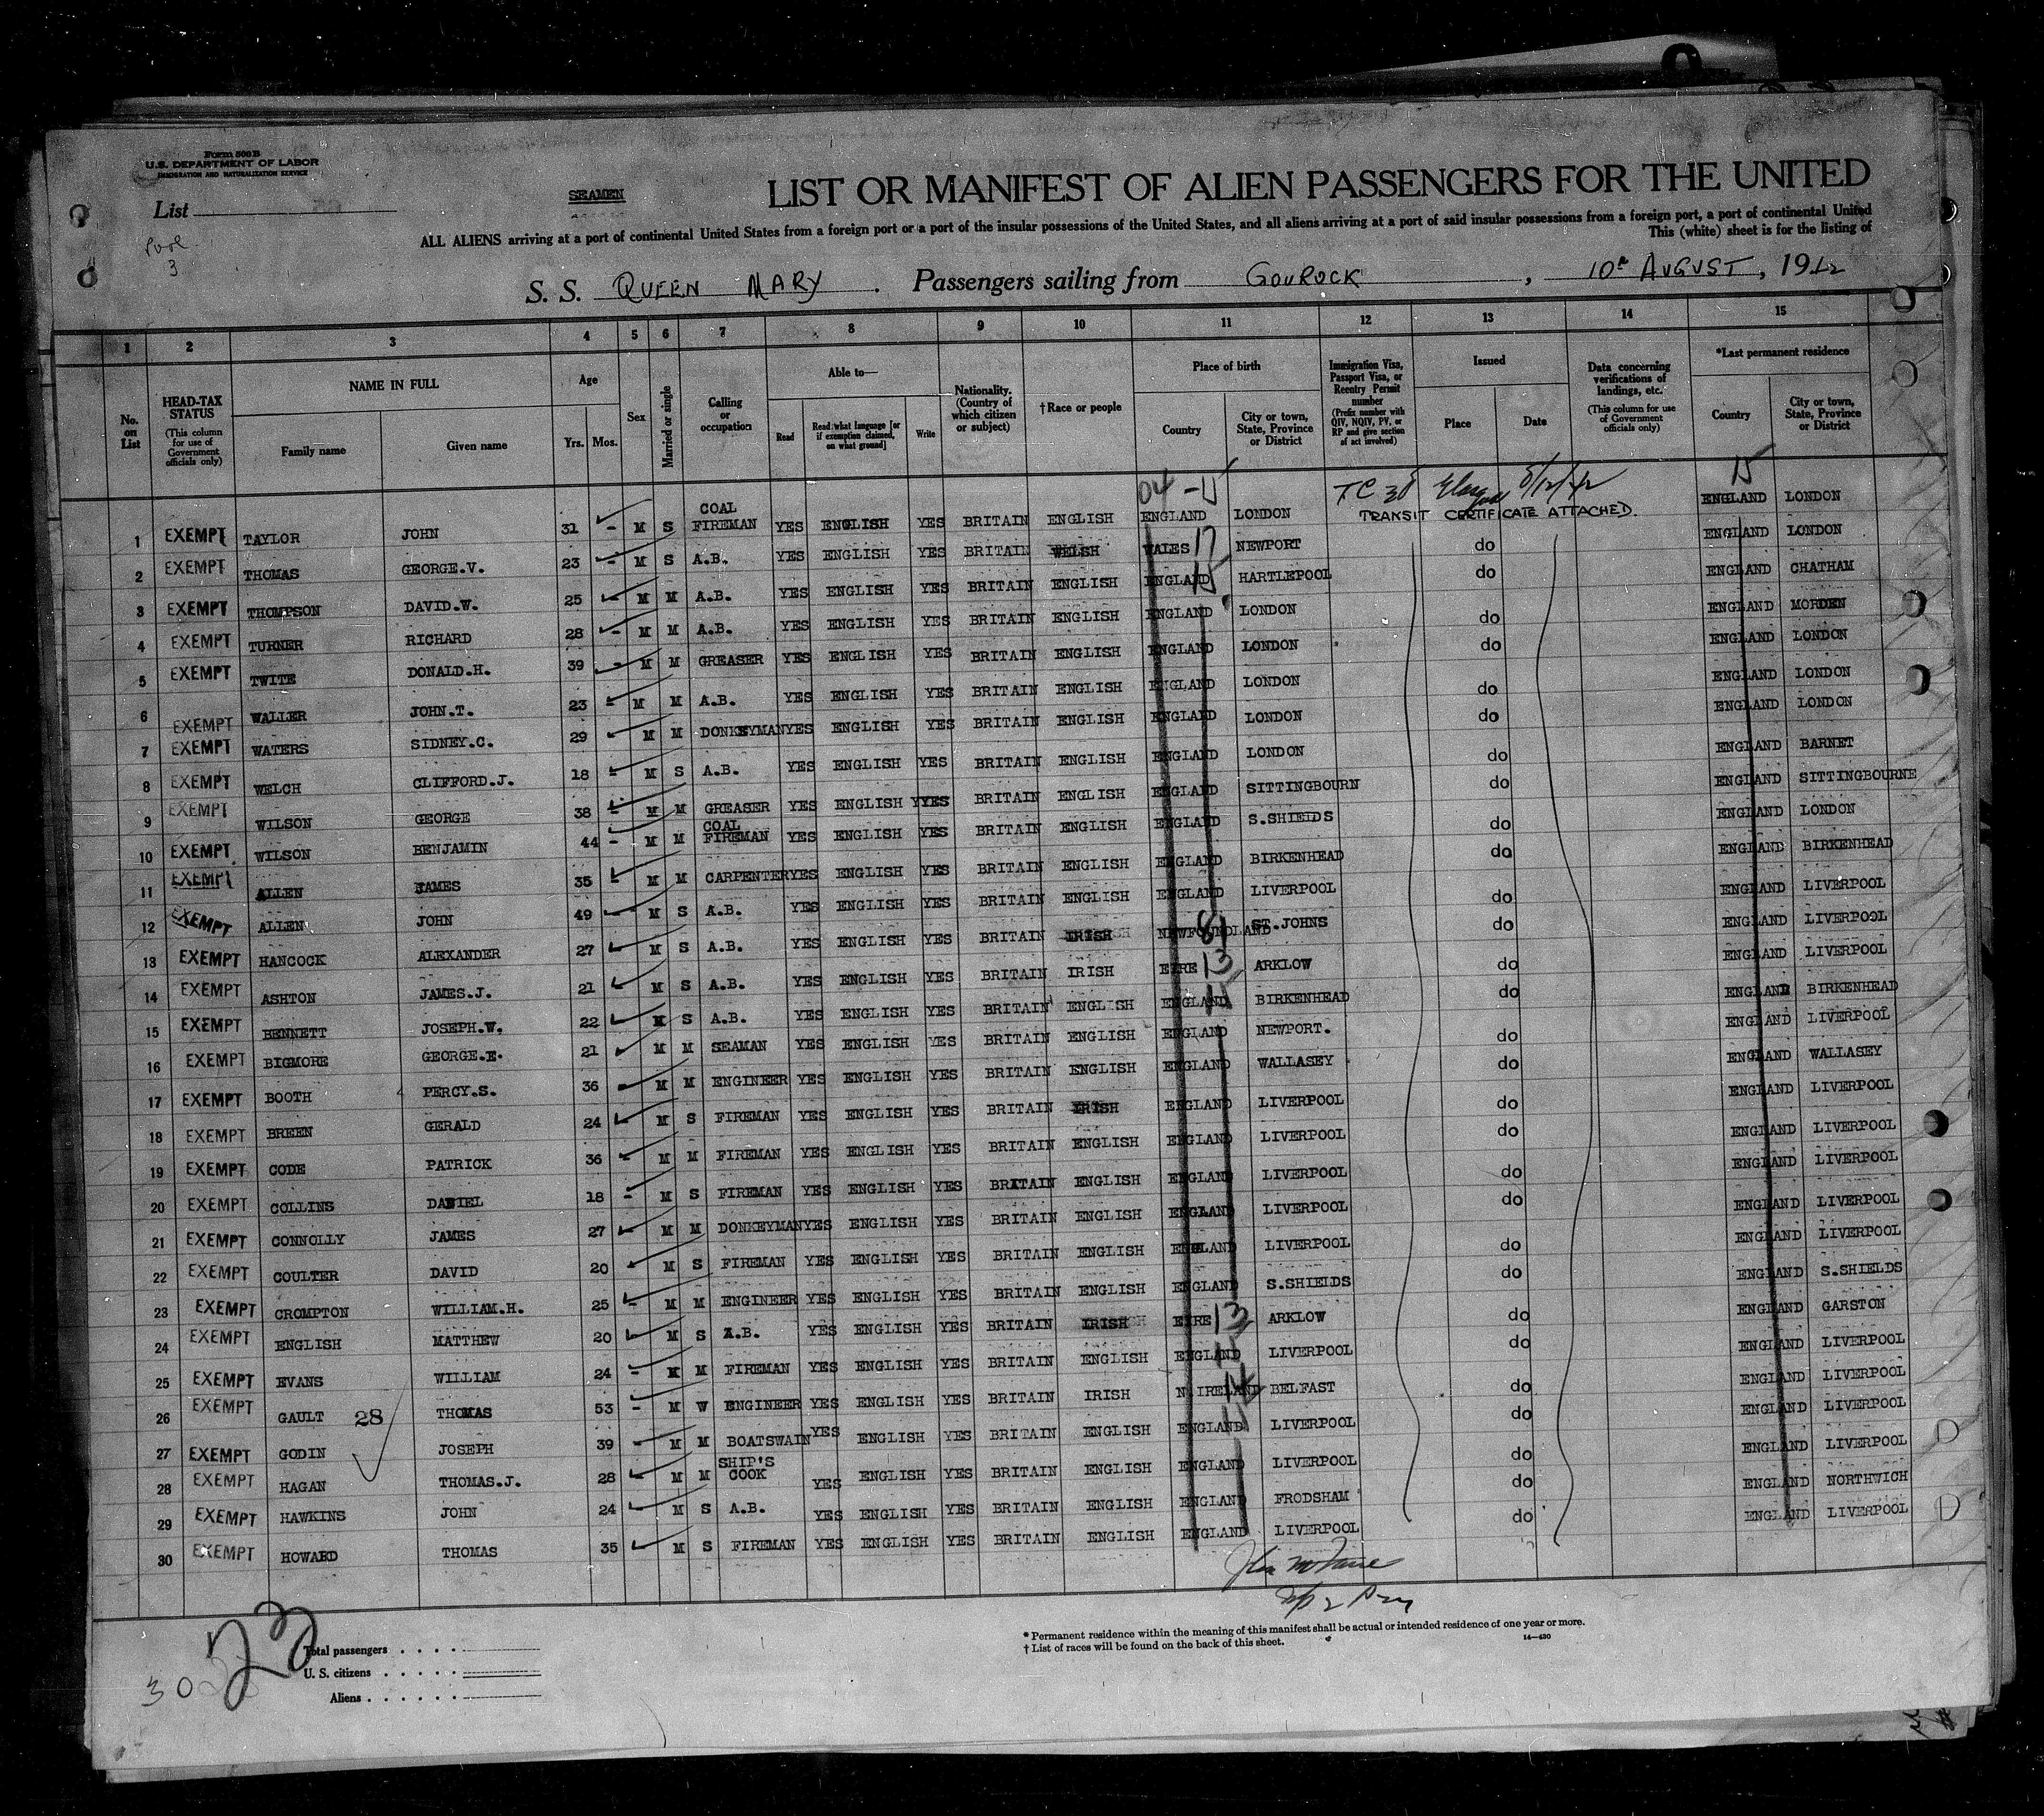 Form 500 B
U.S. DEPARTMENT OF LABOR
IMMIGRATION AND NATURALIZATION SERVICE
List
3
SEAMEN
LIST OR MANIFEST OF ALIEN PASSENGERS FOR THE UNITED
ALL ALIENS arriving at a port of continental United States from a foreign port or a port of the insular possessions of the United States, and all aliens arriving at a port of said insular possessions from a foreign port, a port of continental United
This (white) sheet is for the listing of
S. S. QUEEN MARY. Passengers sailing from GOUROCK, 10th AUGUST, 1942
1 2 3 4 5 6 7 8 9 10 11 12 13 14 15
No. on List
HEAD-TAX STATUS (This column for use of Government officials only)
NAME IN FULL
Family name
Given name
Age
Yrs. Mos.
Sex
Married or single
Calling or occupation
Able to—
Read
Read what language [or if exemption claimed, on what ground]
Write
Nationality. (Country of which citizen or subject)
† Race or people
Place of birth
Country
City or town, State, Province or District
Immigration Visa, Passport Visa, or Reentry Permit number (Prefix number with QIV, NQIV, PV, or RP and give section of act involved)
Issued
Place
Date
Data concerning verifications of landings, etc. (This column for use of Government officials only)
*Last permanent residence
Country
City or town, State, Province or District
04 - 15
TC 30
15
TRANSIT CERTIFICATE ATTACHED.
1 EXEMPT TAYLOR JOHN 31 - M S COAL FIREMAN YES ENGLISH YES BRITAIN ENGLISH ENGLAND LONDON ENGLAND LONDON
2 EXEMPT THOMAS GEORGE.V. 23 - M S A.B. YES ENGLISH YES BRITAIN WELSH WALES 17 NEWPORT do ENGLAND LONDON
3 EXEMPT THOMPSON DAVID.W. 25 - M M A.B. YES ENGLISH YES BRITAIN ENGLISH ENGLAND 15 HARTLEPOOL do ENGLAND CHATHAM
4 EXEMPT TURNER RICHARD 28 - M M A.B. YES ENGLISH YES BRITAIN ENGLISH ENGLAND LONDON do ENGLAND MORDEN
5 EXEMPT TWITE DONALD.H. 39 - M M GREASER YES ENGLISH YES BRITAIN ENGLISH ENGLAND LONDON do ENGLAND LONDON
6 EXEMPT WALLER JOHN.T. 23 - M M A.B. YES ENGLISH YES BRITAIN ENGLISH ENGLAND LONDON do ENGLAND LONDON
7 EXEMPT WATERS SIDNEY.C. 29 - M M DONKEYMAN YES ENGLISH YES BRITAIN ENGLISH ENGLAND LONDON do ENGLAND LONDON
8 EXEMPT WELCH CLIFFORD.J. 18 - M S A.B. YES ENGLISH YES BRITAIN ENGLISH ENGLAND LONDON do ENGLAND BARNET
9 EXEMPT WILSON GEORGE 38 - M M GREASER YES ENGLISH YYES BRITAIN ENGLISH ENGLAND SITTINGBOURN do ENGLAND SITTINGBOURNE
10 EXEMPT WILSON BENJAMIN 44 - M M COAL FIREMAN YES ENGLISH YES BRITAIN ENGLISH ENGLAND S.SHIELDS do ENGLAND LONDON
11 EXEMPT ALLEN JAMES 35 - M M CARPENTER YES ENGLISH YES BRITAIN ENGLISH ENGLAND BIRKENHEAD do ENGLAND BIRKENHEAD
12 EXEMPT ALLEN JOHN 49 - M S A.B. YES ENGLISH YES BRITAIN ENGLISH ENGLAND LIVERPOOL do ENGLAND LIVERPOOL
13 EXEMPT HANCOCK ALEXANDER 27 - M S A.B. YES ENGLISH YES BRITAIN IRISH NEWFOUNDLAND 81 ST.JOHNS do ENGLAND LIVERPOOL
14 EXEMPT ASHTON JAMES.J. 21 - M S A.B. YES ENGLISH YES BRITAIN IRISH EIRE 13 ARKLOW do ENGLAND LIVERPOOL
15 EXEMPT BENNETT JOSEPH.W. 22 - M S A.B. YES ENGLISH YES BRITAIN ENGLISH ENGLAND BIRKENHEAD do ENGLAND BIRKENHEAD
16 EXEMPT BIGMORE GEORGE.E. 21 M M SEAMAN YES ENGLISH YES BRITAIN ENGLISH ENGLAND NEWPORT. do ENGLAND LIVERPOOL
17 EXEMPT BOOTH PERCY.S. 36 - M M ENGINEER YES ENGLISH YES BRITAIN ENGLISH ENGLAND WALLASEY do ENGLAND WALLASEY
18 EXEMPT BREEN GERALD 24 - M S FIREMAN YES ENGLISH YES BRITAIN IRISH ENGLAND LIVERPOOL do ENGLAND LIVERPOOL
19 EXEMPT CODE PATRICK 36 - M M FIREMAN YES ENGLISH YES BRITAIN ENGLISH ENGLAND LIVERPOOL do ENGLAND LIVERPOOL
20 EXEMPT COLLINS DANIEL 18 - M S FIREMAN YES ENGLISH YES BRITAIN ENGLISH ENGLAND LIVERPOOL do ENGLAND LIVERPOOL
21 EXEMPT CONNOLLY JAMES 27 - M M DONKEYMAN YES ENGLISH YES BRITAIN ENGLISH ENGLAND LIVERPOOL do ENGLAND LIVERPOOL
22 EXEMPT COULTER DAVID 20 - M S FIREMAN YES ENGLISH YES BRITAIN ENGLISH ENGLAND LIVERPOOL do ENGLAND LIVERPOOL
23 EXEMPT CROMPTON WILLIAM.H. 25 - M M ENGINEER YES ENGLISH YES BRITAIN ENGLISH ENGLAND S.SHIELDS do ENGLAND S.SHIELDS
24 EXEMPT ENGLISH MATTHEW 20 - M S A.B. YES ENGLISH YES BRITAIN IRISH EIRE 13 ARKLOW do ENGLAND GARSTON
25 EXEMPT EVANS WILLIAM 24 - M M FIREMAN YES ENGLISH YES BRITAIN ENGLISH ENGLAND LIVERPOOL do ENGLAND LIVERPOOL
26 EXEMPT GAULT 28 THOMAS 53 - M W ENGINEER YES ENGLISH YES BRITAIN IRISH N.IRELAND 14 BELFAST do ENGLAND LIVERPOOL
27 EXEMPT GODIN JOSEPH 39 - M M BOATSWAIN YES ENGLISH YES BRITAIN ENGLISH ENGLAND LIVERPOOL do ENGLAND LIVERPOOL
28 EXEMPT HAGAN THOMAS.J. 28 - M M SHIP'S COOK YES ENGLISH YES BRITAIN ENGLISH ENGLAND LIVERPOOL do ENGLAND LIVERPOOL
29 EXEMPT HAWKINS JOHN 24 - M S A.B. YES ENGLISH YES BRITAIN ENGLISH ENGLAND FRODSHAM do ENGLAND NORTHWICH
30 EXEMPT HOWARD THOMAS 35 - M S FIREMAN YES ENGLISH YES BRITAIN ENGLISH ENGLAND LIVERPOOL do ENGLAND LIVERPOOL
30
Total passengers . . . .
U. S. citizens . . . . .
Aliens . . . . . .
* Permanent residence within the meaning of this manifest shall be actual or intended residence of one year or more.
† List of races will be found on the back of this sheet.
14—430